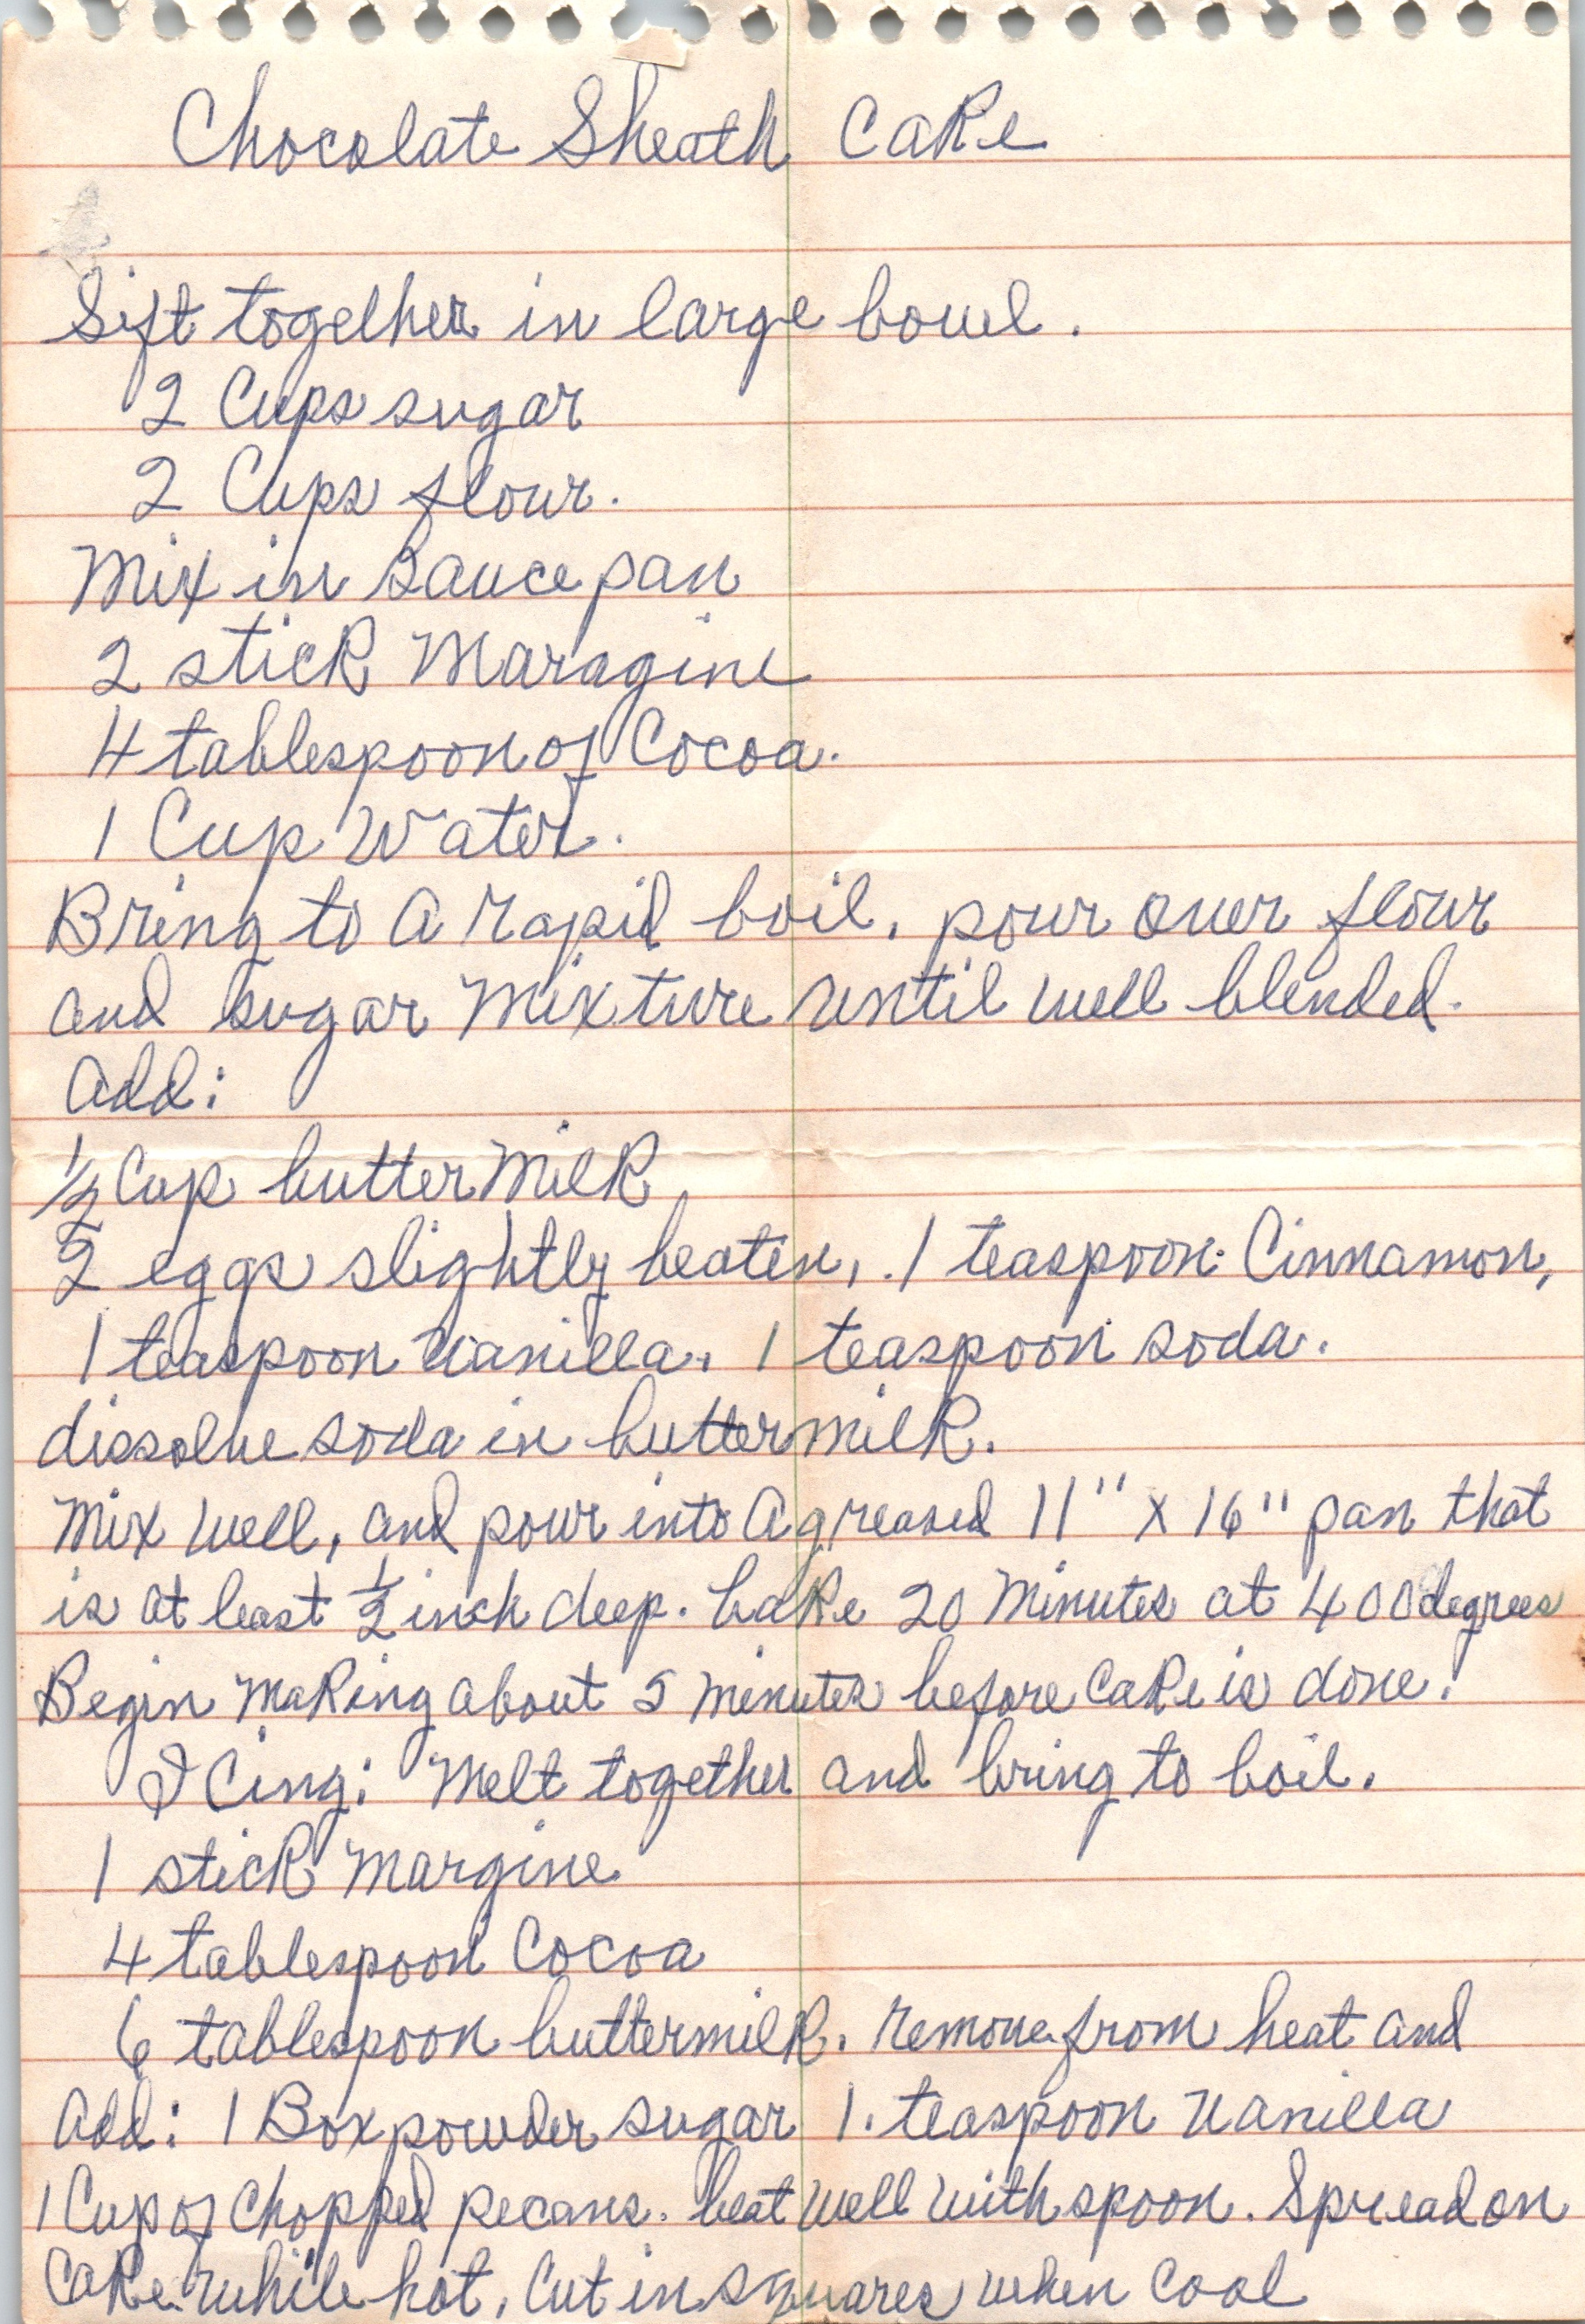 Chocolate Sheath Cake
Sift together in large bowl.
2 Cups sugar
2 Cups flour.
Mix in Sauce pan
2 stick Maragine
4 tablespoon of Cocoa.
1 Cup Water.
Bring to A rapid boil, pour over flour
and sugar Mixture until well blended.
Add:
1/2 Cup butter Milk
2 eggs slightly beaten, 1 teaspoon Cinnamon,
1 teaspoon vanilla, 1 teaspoon soda.
dissolve soda in buttermilk.
Mix well, and pour into A greased 11" x 16" pan that
is at least 1/2 inch deep. bake 20 Minutes at 400 degrees
Begin Making about 5 Minutes before Cake is done!
ICing: Melt together and bring to boil.
1 stick Margine
4 tablespoon Cocoa
6 tablespoon buttermilk. remove from heat and
Add: 1 Box powder sugar 1. teaspoon vanilla
1 Cup of Chopped pecans. beat well with spoon. Spread on
Cake while hot, Cut in squares when Cool